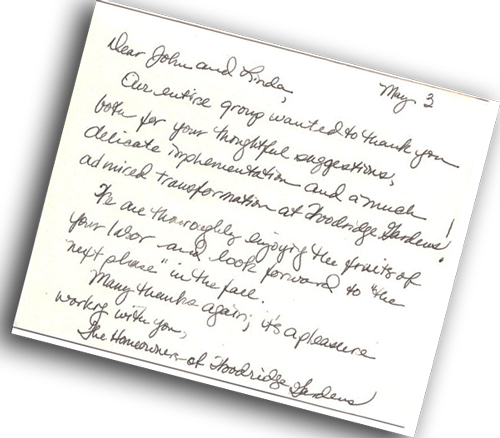 May 3
Dear John and Linda,
Our entire group wanted to thank you
both for your thoughtful suggestions,
delicate implementation and a much
admired transformation at Woodridge Gardens!
We are thoroughly enjoying the fruits of
your labor and look forward to "the
next phase" in the fall.
Many thanks again; its a pleasure
working with you,
The Homeowners of Woodridge Gardens